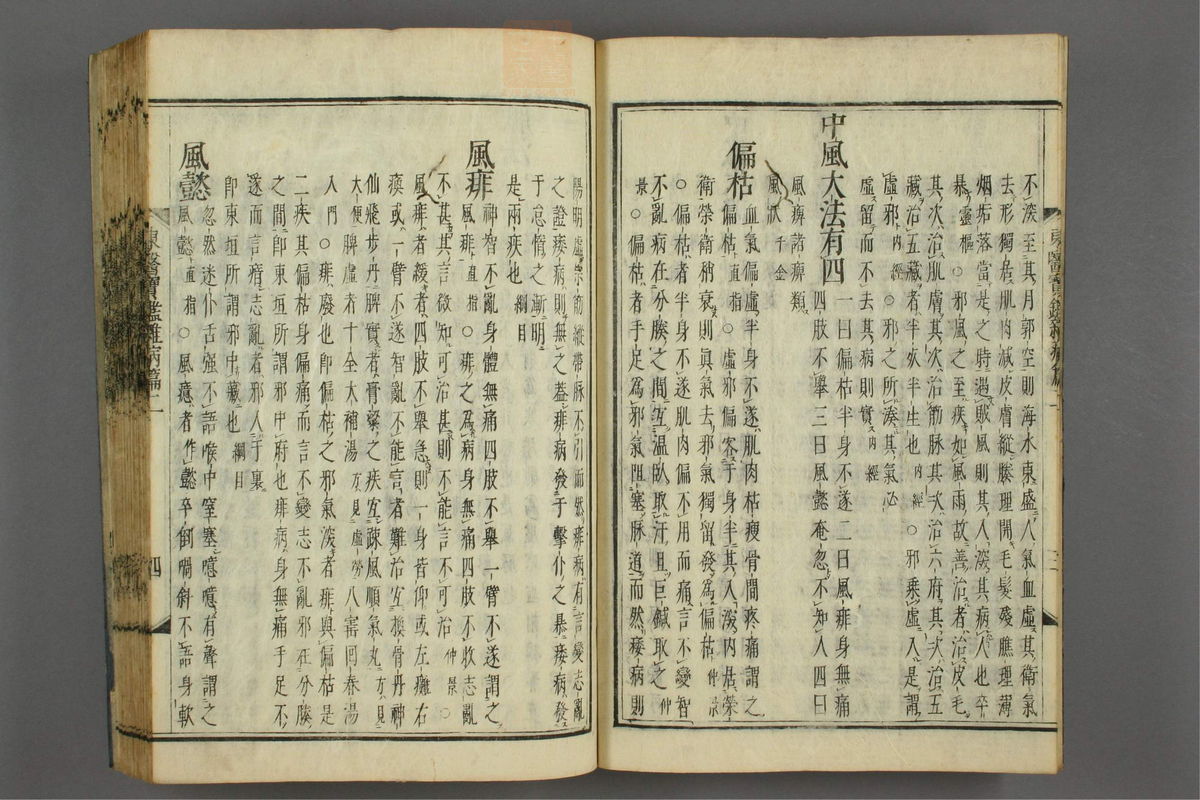 不深至其月郭空則海水東盛人氣血虛其衛氣
去形獨居肌肉減皮膚縱腠理開毛髮殘膲理薄
烟垢落當是之時遇賊風則其入深其病人也卒
暴靈樞○邪風之至疾如風雨故善治者治皮毛
其次治肌膚其次治筋脉其次治六府其次治五
藏治五藏者半死半生也內經○邪乘虛入是謂
虛邪內經○邪之所湊其氣必
虛留而不去其病則實內經
中風大法有四一曰偏枯半身不遂二曰風痱身無痛
四肢不擧三曰風懿奄忽不知人四曰
風痺諸痺類
風狀千金
偏枯血氣偏虛半身不遂肌肉枯瘦骨間疼痛謂之
偏枯直指○虛邪偏客于身半其入深內居榮
衛榮衛稍衰則眞氣去邪氣獨留發爲偏枯仲景
○偏枯者半身不遂肌肉偏不用而痛言不變智
不亂病在分腠之間宜溫臥取汗且巨鍼取之仲
景○偏枯者手足爲邪氣阻塞脉道而然痿病則
東醫寶鑑雜病篇二 三
陽明虛宗筋縱帶脉不引而然痱病有言變志亂
之證痿病則無之蓋痱病發于擊仆之暴痿病發
于怠惰之漸明
是兩疾也綱目
風痱神智不亂身體無痛四肢不擧一臂不遂謂之
風痱直指○痱之爲病身無痛四肢不收志亂
不甚其言微知可治甚則不能言不可治仲景○
風痱者緩者四肢不擧急則一身皆仰或左癱右
瘓或一臂不遂智亂不能言者難治宜換骨丹神
仙飛步丹脾實者膏粱之疾宜疎風順氣丸方見
大便脾虛者十全大補湯方見虛勞八寶囘春湯
入門○痱廢也卽偏枯之邪氣深者痱與偏枯是
二疾其偏枯身偏痛而言不變志不亂邪在分腠
之間卽東垣所謂邪中府也痱病身無痛手足不
遂而言瘖志亂者邪入于裏
卽東垣所謂邪中藏也綱目
風懿風懿直指○風懿者作懿卒倒喎斜不語身軟
忽然迷仆舌强不語喉中窒塞噫噫有聲謂之
東醫寶鑑雜病篇二 四